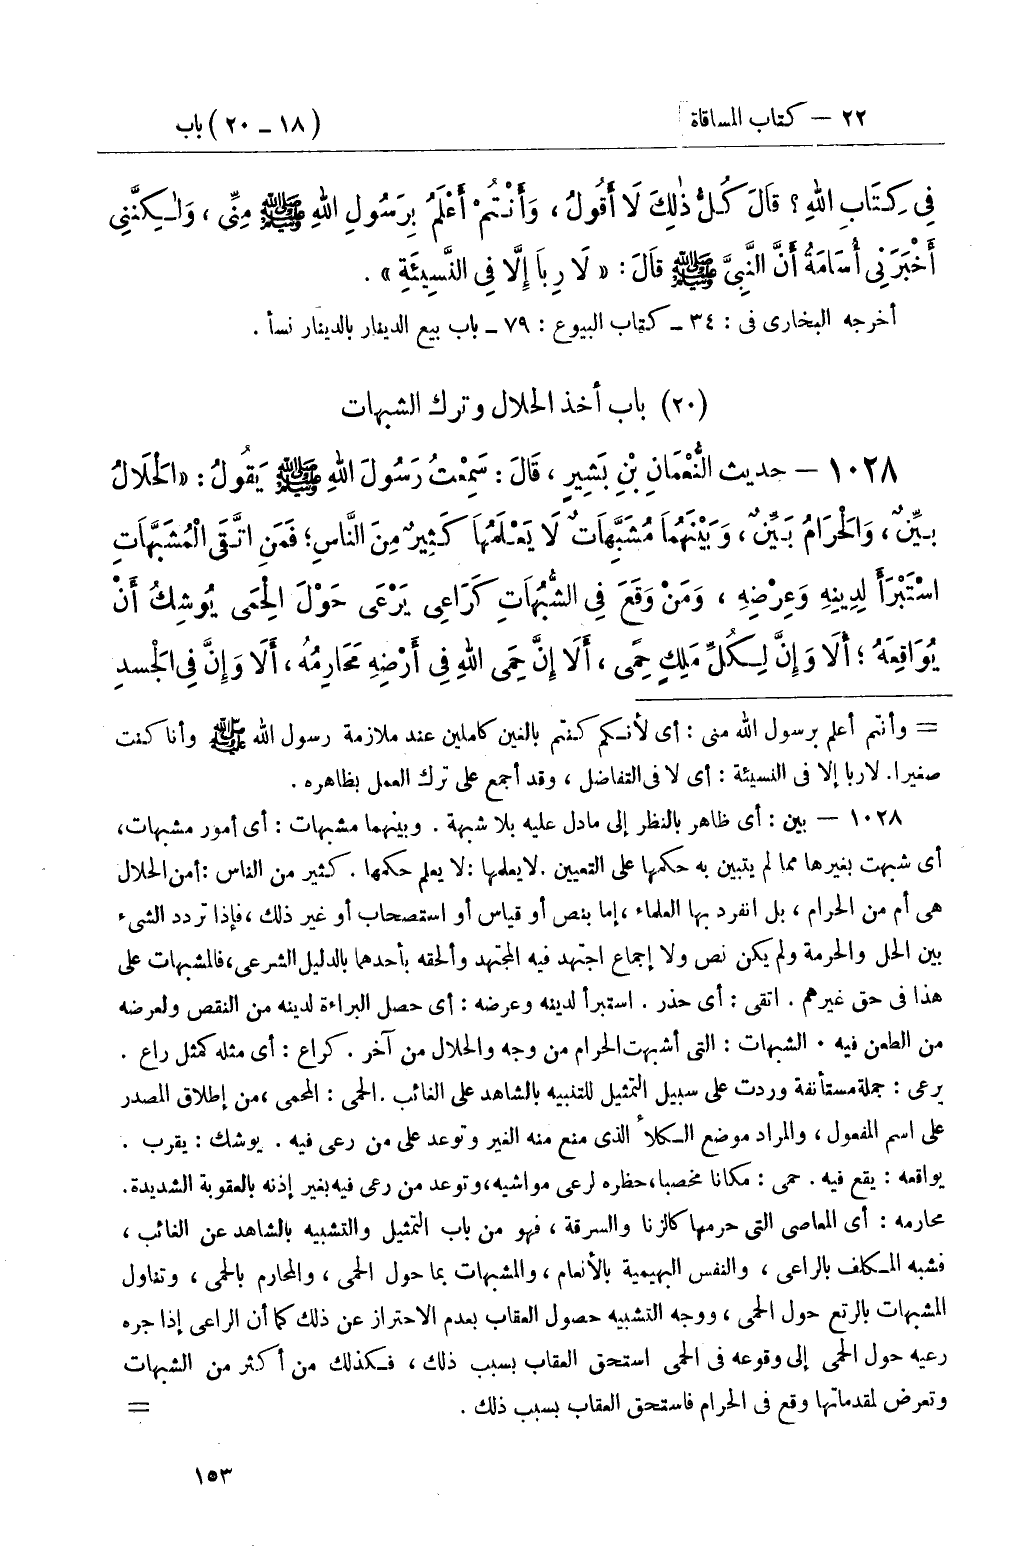 ٢٢ – كتاب المساقاة (١٨ – ٢٠) باب
فِي كِتَابِ اللهِ ؟ قَالَ كُلُّ ذٰلِكَ لَا أَقُولُ ، وَأَنْتُمْ أَعْلَمُ بِرَسُولِ اللهِ ﷺ مِنِّي ، وَلٰكِنَّنِي
أَخْبَرَنِي أُسَامَةُ أَنَّ النَّبِيَّ ﷺ قَالَ : « لَا رِبا إِلَّا فِي النَّسِيئَةِ » .
أخرجه البخارى فى : ٣٤ – كتاب البيوع : ٧٩ – باب بيع الدينار بالدينار نسأ .
(٢٠) باب أخذ الحلال وترك الشبهات
١٠٢٨ – حديث النُّعْمَانِ بْنِ بَشِيرٍ ، قَالَ : سَمِعْتُ رَسُولَ اللهِ ﷺ يَقُولُ : « الْحَلَالُ
بَيِّنٌ ، وَالْحَرَامُ بَيِّنٌ ، وَبَيْنَهُمَا مُشَبَّهَاتٌ لَا يَعْلَمُهَا كَثِيرٌ مِنَ النَّاسِ ؛ فَمَنِ اتَّقَى الْمُشَبَّهَاتِ
اسْتَبْرَأَ لِدِينِهِ وَعِرْضِهِ ، وَمَنْ وَقَعَ فِي الشُّبُهَاتِ كَرَاعِي يَرْعَى حَوْلَ الْحِمَى يُوشِكُ أَنْ
يُوَاقِعَهُ ؛ أَلَا وَإِنَّ لِكُلِّ مَلِكٍ حِمًى ، أَلَا إِنَّ حِمَى اللهِ فِي أَرْضِهِ مَحَارِمُهُ ، أَلَا وَإِنَّ فِي الْجَسدِ
= وأنتم أعلم برسول الله منى : أى لأنكم كنتم بالغين كاملين عند ملازمة رسول الله ﷺ وأنا كنت
صغيرا. لاربا إلا فى النسيئة : أى لا فى التفاضل ، وقد أجمع على ترك العمل بظاهره .
١٠٢٨ – بين : أى ظاهر بالنظر إلى مادل عليه بلا شبهة . وبينهما مشبهات : أى أمور مشبهات،
أى شبهت بغيرها مما لم يتبين به حكمها على التعيين . لايعلمها : لا يعلم حكمها . كثير من الناس : أمن الحلال
هى أم من الحرام ، بل انفرد بها العلماء ، إما بنص أو قياس أو استصحاب أو غير ذلك ، فإذا تردد الشىء
بين الحل والحرمة ولم يكن نص ولا إجماع اجتهد فيه المجتهد وألحقه بأحدهما بالدليل الشرعى، فالمشبهات على
هذا فى حق غيرهم . اتقى : أى حذر . استبرأ لدينه وعرضه : أى حصل البراءة لدينه من النقص ولعرضه
من الطعن فيه . الشبهات : التى أشبهت الحرام من وجه والحلال من آخر . كراع : أى مثله كمثل راع .
يرعى : جملة مستأنفة وردت على سبيل التمثيل للتنبيه بالشاهد على الغائب . الحمى : المحمى ، من إطلاق المصدر
على اسم المفعول ، والمراد موضع الكلأ الذى منع منه الغير وتوعد على من رعى فيه . يوشك : يقرب .
يواقعه : يقع فيه . حمى : مكانا مخصبا، حظره لرعى مواشيه، وتوعد من رعى فيه بغير إذنه بالعقوبة الشديدة.
محارمه : أى المعاصى التى حرمها كالزنا والسرقة ، فهو من باب التمثيل والتشبيه بالشاهد عن الغائب ،
فشبه المكلف بالراعى ، والنفس البهيمية بالأنعام ، والمشبهات بما حول الحمى ، والمحارم بالحمى ، وتناول
المشبهات بالرتع حول الحمى ، ووجه التشبيه حصول العقاب بعدم الاحتراز عن ذلك كما أن الراعى إذا جره
رعيه حول الحمى إلى وقوعه فى الحمى استحق العقاب بسبب ذلك ، فكذلك من أكثر من الشبهات
وتعرض لمقدماتها وقع فى الحرام فاستحق العقاب بسبب ذلك . =
١٥٣